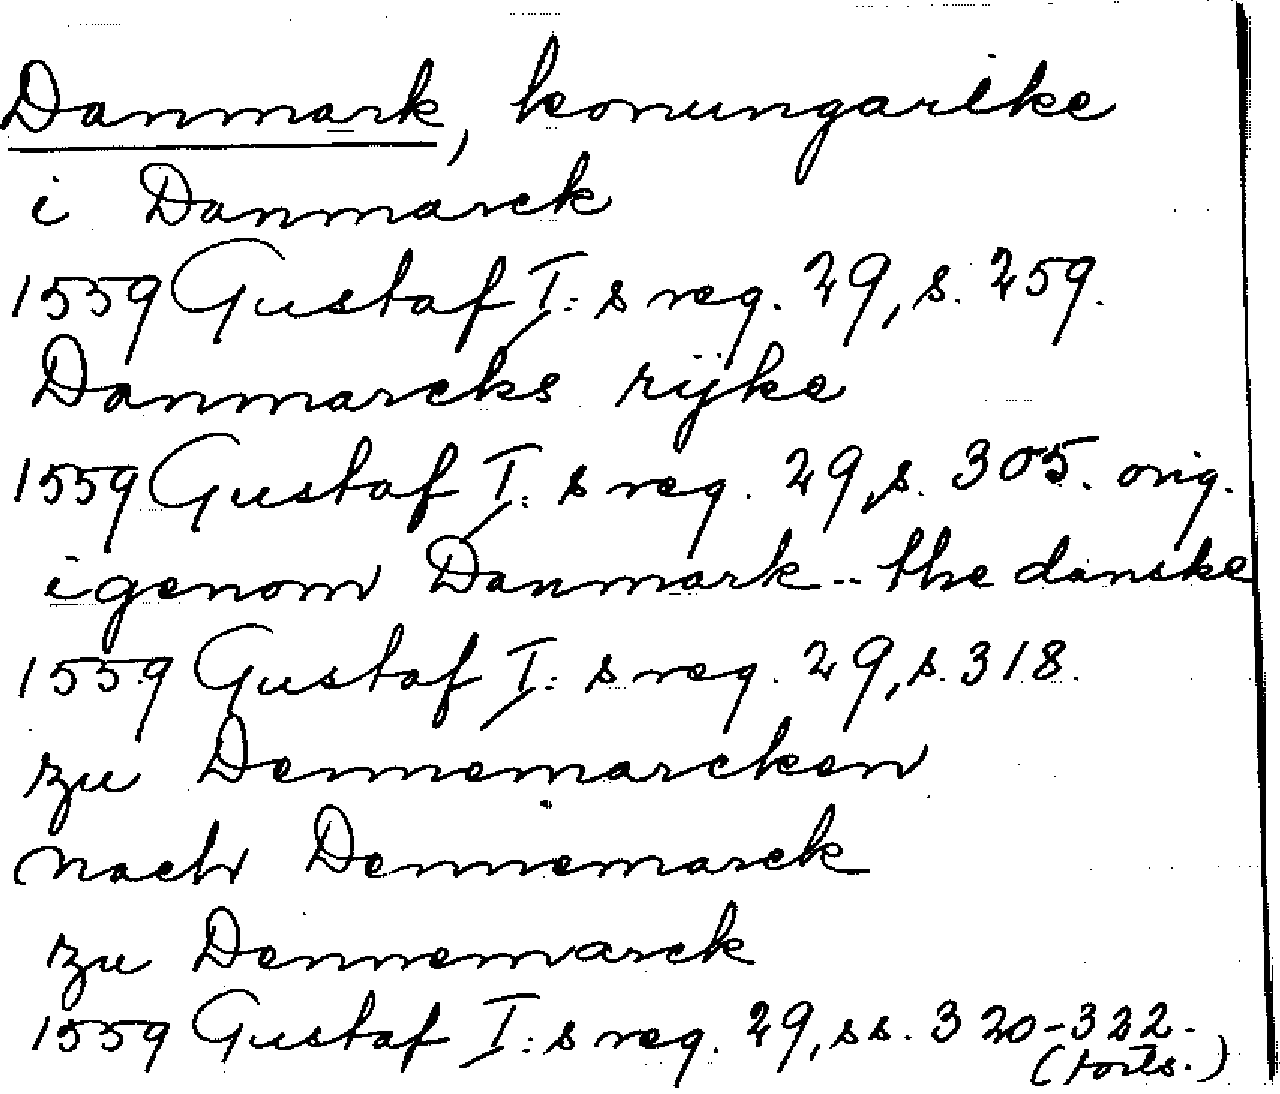 Danmark, konungarike
i Danmarck
1559 Gustaf I:s reg. 29, s. 259.
Danmarcks rijke
1559 Gustaf I:s reg. 29, s. 305. orig.
igenom Danmark -- the danske
1559 Gustaf I:s reg. 29, s. 318.
zu Dennemarcken
nach Dennemarck
zu Dennemarck
1559 Gustaf I:s reg. 29, ss. 320-322.
(forts.)